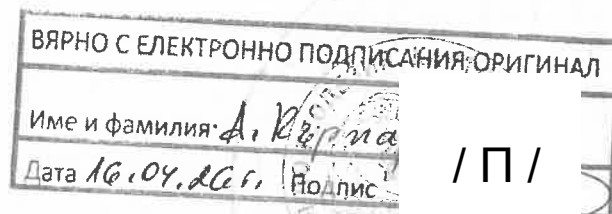 ВЯРНО С ЕЛЕКТРОННО ПОДПИСАНИЯ ОРИГИНАЛ
Име и фамилия: А.
/ П /
Дата 16.04.26 г. Подпис